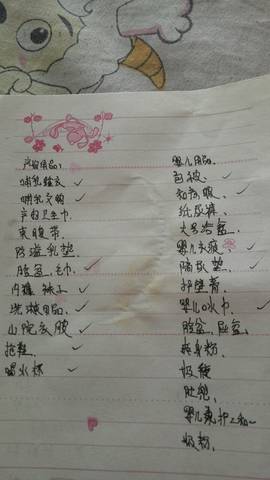 产妇用品:
哺乳睡衣
哺乳文胸
产妇卫生巾.
束腹带.
防溢乳垫.
脸盆.毛巾
内裤 袜子
洗漱用品.
出院衣服
拖鞋
喝水杯
婴儿用品.
包被.
和尚服.
纸尿裤.
大号浴盆
婴儿衣
隔尿垫
护臀膏.
婴儿口水巾
脸盆、屁盆.
爽身粉.
奶瓶
肚兜.
婴儿
奶粉、